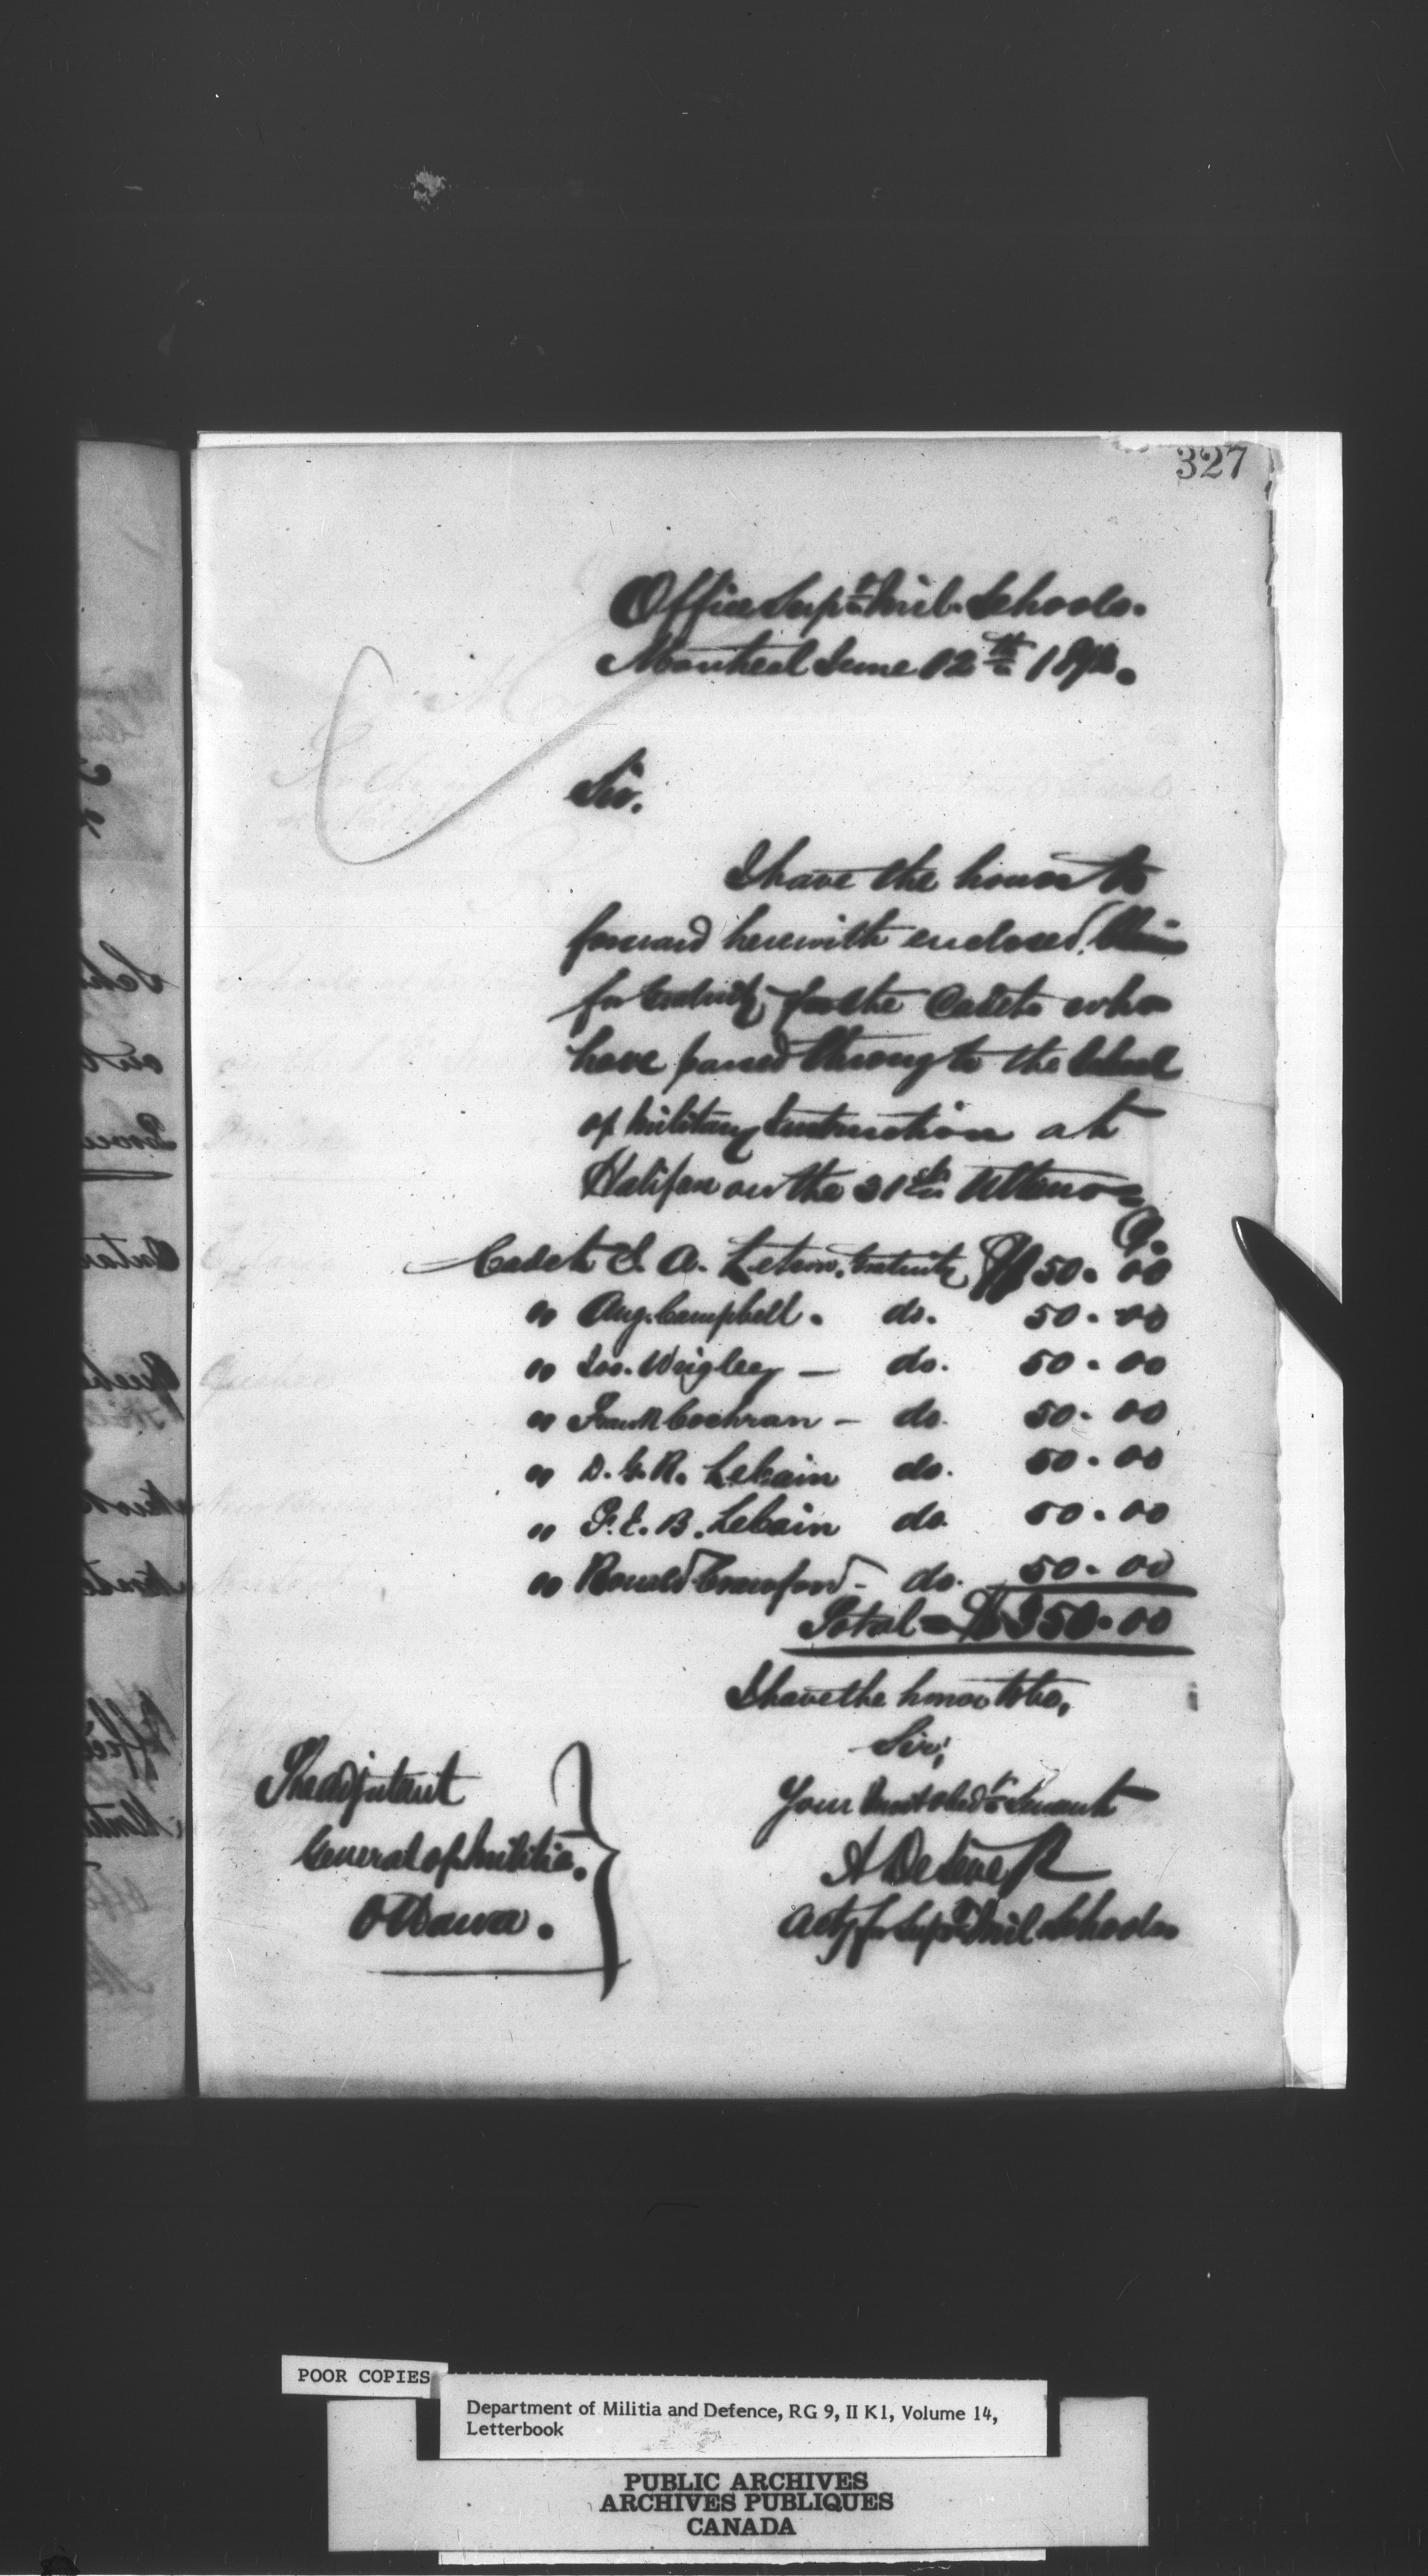 327
Office Supt. Mil. Schools.
Montreal June 12th 187
Sir.
I have the honor to
forward herewith enclosed, Claim
for Gratuity for the Cadets who
have passed through the School
of Military Instruction at
Halifax on the 31st Ultimo
Cadet A. Gratuity $50.00
" Aug. Campbell. do. 50.00
" Jos. Wrigley — do. 50.00
" Frank Cochran — do. 50.00
" D. G. R. LeCain do. 50.00
" F. E. B. LeCain do. 50.00
" Ronald Crawford — do. 50.00
Total = $350.00
I have the honor to be,
Sir,
Your Most Obedt Servant
A
Actg for Supt Mil Schools
The Adjutant
General of Militia.
Ottawa.
POOR COPIES
Department of Militia and Defence, RG 9, II K1, Volume 14,
Letterbook
PUBLIC ARCHIVES
ARCHIVES PUBLIQUES
CANADA